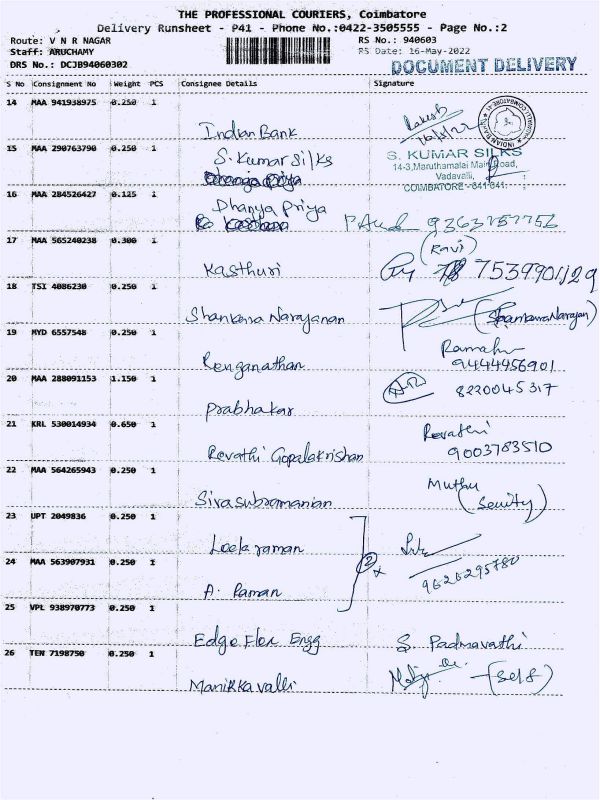 THE PROFESSIONAL COURIERS, Coimbatore
Delivery Runsheet - P41 - Phone No.:0422-3505555 - Page No.:2
Route: V N R NAGAR RS No.: 940603
Staff: ARUCHAMY RS Date: 16-May-2022
DRS No.: DCJB94060302 DOCUMENT DELIVERY
S No Consignment No Weight PCS Consignee Details Signature
14 MAA 941938975 0.250 1
Indian Bank Rakesh
16/5/22
15 MAA 290763790 0.250 1
S. Kumar Silks
S. KUMAR SILKS
14-3,Maruthamalai Main Road,
Vadavalli,
COIMBATORE - 641 041.
Dhanya Priya
16 MAA 284526427 0.125 1
Dhanya Priya
9363757756
17 MAA 565240238 0.300 1
(Ravi)
Kasthuri 7539901129
18 TSI 4086230 0.250 1
Shankara Narayanan
19 MYD 6557548 0.250 1
Renganathan
9444456901
20 MAA 288091153 1.150 1
Prabhakar 8220045317
21 KRL 530014934 0.650 1
Revathi Gopalakrishan Revathi
9003783510
22 MAA 564265943 0.250 1
Sivasubramanian Muthu
23 UPT 2049836 0.250 1
Leela raman
2
24 MAA 563907931 0.250 1
A. Raman 9626295780
25 VPL 938970773 0.250 1
Edge Flex Engg S. Padmavathi
26 TEN 7198750 0.250 1
Manikkavalli (Self)